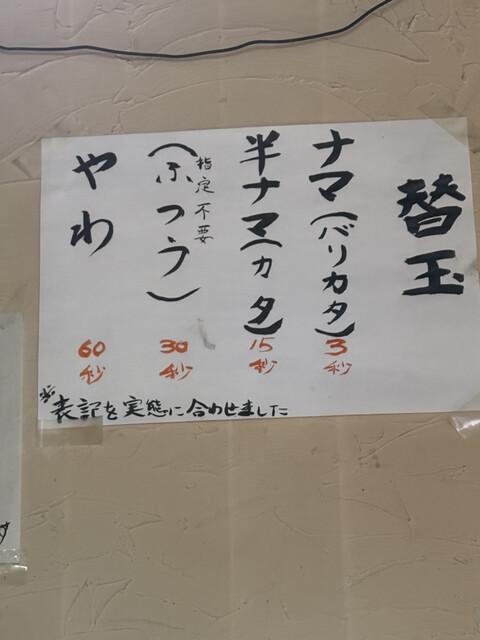 替玉
ナマ(バリカタ)
3秒
半ナマ(カタ)
15秒
(ふつう)
指定不要
30秒
やわ
60秒
※表記を実態に合わせました